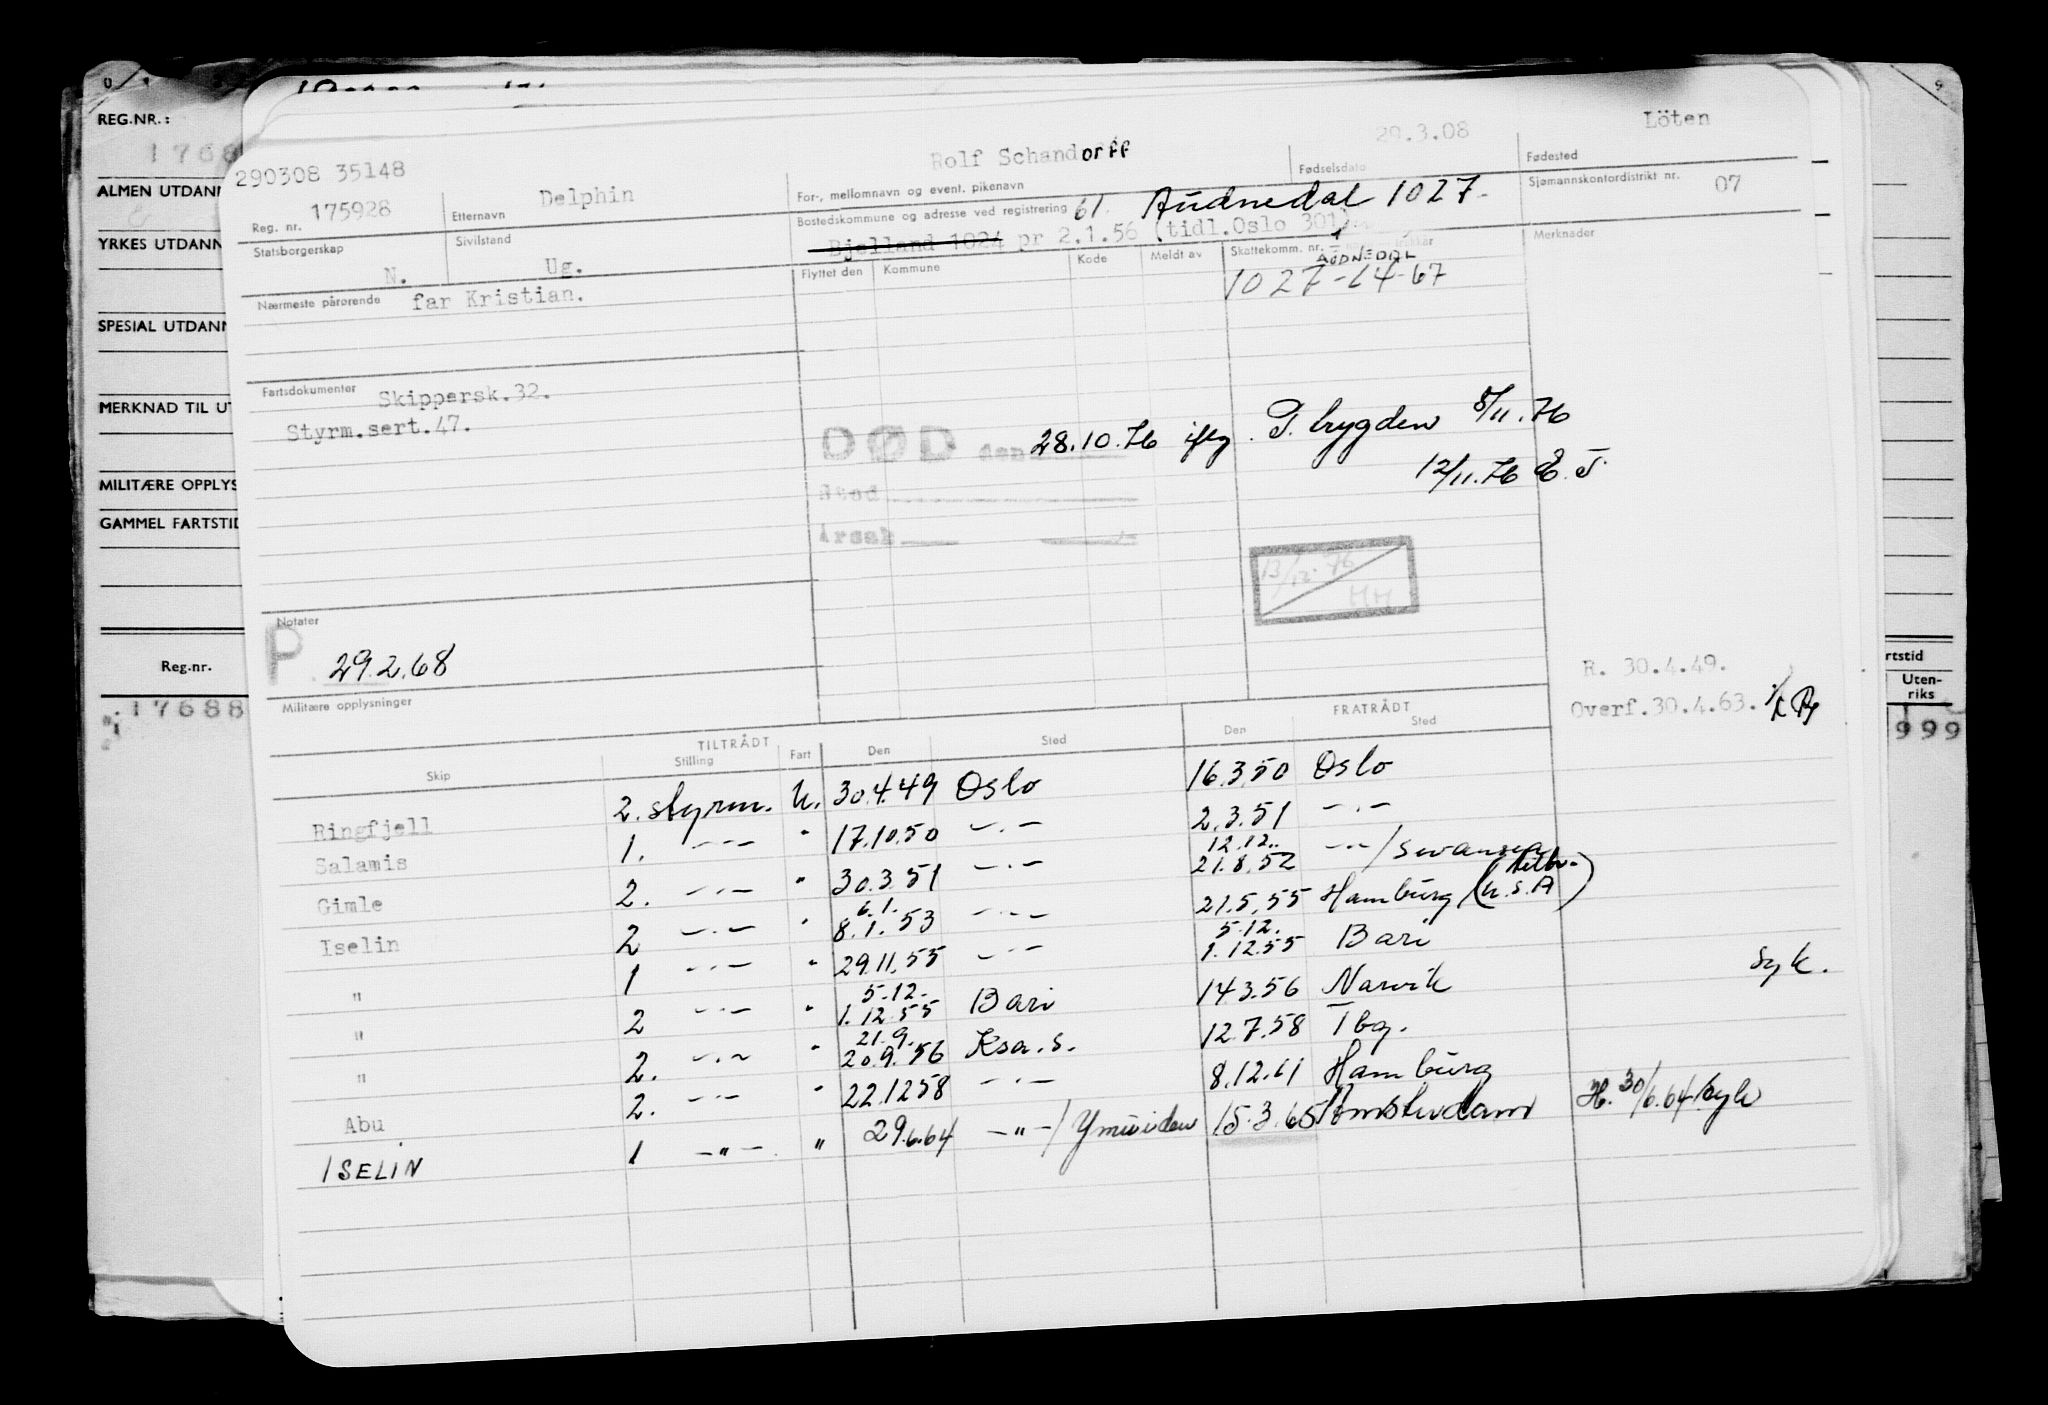 REG.NR.:
1768
ALMEN UTDANN
YRKES UTDANN
SPESIAL UTDANN
MERKNAD TIL UT
MILITÆRE OPPLYS
GAMMEL FARTSTID
Reg.nr.
17688
290308 35148
Rolf Schandorff
29.3.08
Löten
Reg. nr. 175928
Etternavn Delphin
For-, mellomnavn og event. pikenavn
Fødselsdato
Fødested
Bostedskommune og adresse ved registrering 61. Audnedal 1027.
Sjømannskontordistrikt nr. 07
Statsborgerskap N.
Sivilstand Ug.
Bjelland 1024 pr 2.1.56 (tidl.Oslo 301)
Flyttet den Kommune Kode Meldt av Skattekomm. nr.
Merknader
AUDNEDAL
1027-14-67
Nærmeste pårørende far Kristian.
Fartsdokumenter Skippersk.32.
Styrm.sert.47.
DØD den 28.10.76 iflg. T. brygden 5/11.76
12/11.76 E.T.
Sted
Årsak
13/12-76
HH
Notater
P 29.2.68
Militære opplysninger
R. 30.4.49.
Overf.30.4.63.
TILTRÅDT FRATRÅDT
Skip Stilling Fart Den Sted Den Sted
Ringfjell 2. styrm. U. 30.4.49 Oslo 16.3.50 Oslo
Salamis 1. -"- " 17.10.50 -"- 2.3.51 -"-
Gimle 2. -"- " 30.3.51 -"- 12.12. 21.8.52 -"-/Swansea
Iselin 2 -"- " 6.1. 8.1.53 -"- 21.5.55 Hamburg (U.S.A)
" 1 -"- " 29.11.55 -"- 5.12. 1.12.55 Bari
" 2 -"- " 5.12. 1.12.55 Bari 14.3.56 Narvik syk.
" 2. -"- " 21.9. 20.9.56 Ksa.s. 12.7.58 Tbg.
Abu 2. -"- " 22.12.58 -"- 8.12.61 Hamburg
ISELIN 1 -"- " 29.6.64 -"-/Ymuiden 15.3.65 Amsterdam H. 30/6.64/syk
rtstid
Uten-
riks
999